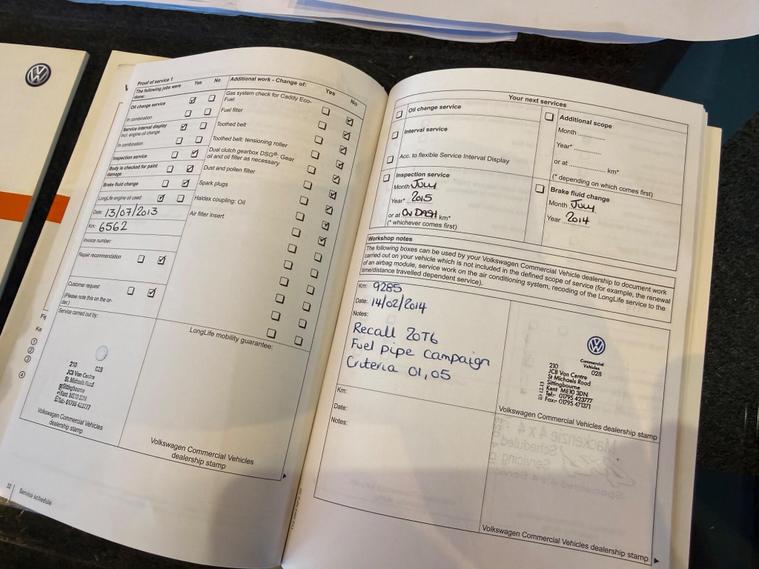 Proof of service 1
The following jobs were done:
Yes
No
Oil change service
In combination
Service interval display incl. engine oil change
In combination
Inspection service
Body is checked for paint damage
Brake fluid change
LongLife engine oil used
Date: 13/07/2013
Km: 6562
Invoice number:
Repair recommendation
Customer request
(Please note this on the order.)
Service carried out by:
210
028
JCB Van Centre
St Michaels Road
Sittingbourne
Kent ME10 3DN
Tel: 01795 423777
Volkswagen Commercial Vehicles
dealership stamp
Additional work - Change of:
Yes
No
Gas system check for Caddy Eco-
Fuel
Fuel filter
Toothed belt
Toothed belt: tensioning roller
Dual clutch gearbox DSG®: Gear
oil and oil filter as necessary
Dust and pollen filter
Spark plugs
Haldex coupling: Oil
Air filter insert
LongLife mobility guarantee:
Volkswagen Commercial Vehicles
dealership stamp
Service schedule
Your next services
Oil change service
Interval service
Acc. to flexible Service Interval Display
Inspection service
Month July
Year* 2015
or at On DASH km*
(* whichever comes first)
Additional scope
Month
Year*
or at km*
(* depending on which comes first)
Brake fluid change
Month July
Year 2014
Workshop notes
The following boxes can be used by your Volkswagen Commercial Vehicle dealership to document work
carried out on your vehicle which is not included in the defined scope of service (for example, the renewal
of an airbag module, service work on the air conditioning system, recoding of the LongLife service to the
time/distance travelled dependent service).
Km: 9285
Date: 14/02/2014
Notes:
Recall 20T6
Fuel Pipe Campaign
Criteria 01,05
Commercial
Vehicles
210
028
JCB Van Centre
St Michaels Road
Sittingbourne
Kent ME10 3DN
Tel: 01795 423777
Fax: 01795 471371
Volkswagen Commercial Vehicles dealership stamp
Km:
Date:
Notes:
Volkswagen Commercial Vehicles dealership stamp